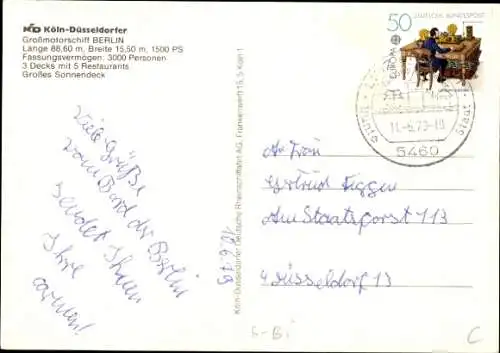 KD Köln-Düsseldorfer
Großmotorschiff BERLIN
Länge 88,60 m, Breite 15,50 m, 1500 PS
Fassungsvermögen: 3000 Personen
3 Decks mit 5 Restaurants
Großes Sonnendeck
Viele Grüße
vom Bord der Berlin
sendet Ihnen
Ihre
Köln-Düsseldorfer Deutsche Rheinschiffahrt AG, Frankenwerft 15, 5 Köln 1
50 DEUTSCHE BUNDESPOST
EUROPA
5460
An Frau
Gertrud
Am Staatsforst 113
4 Düsseldorf 13
C